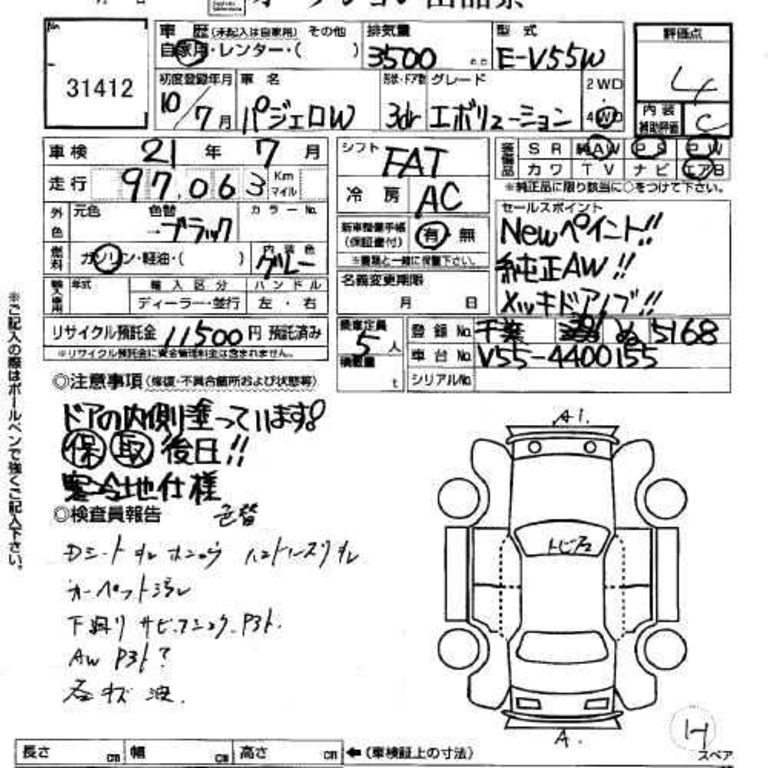 オークション出品票
31412
車歴 (未記入は自家用) その他
自家用・レンター・( )
排気量
3500 c.c
型式
E-V55W
評価点
4
初度登録年月
10/7月
車名
パジェロW
形状・ドア数
3dr
グレード
エボリューション
2WD
4WD
内装
補助評価
C
車検 21年 7月
走行 97,063 Km マイル
シフト
FAT
冷房
AC
装備品
SR 純AW PS PW
カワ TV ナビ エアB
※純正品に限り該当に○をつけて下さい。
外色
元色
色替
ブラック
カラーNo.
燃料
ガソリン・軽油・( )
内装色
グレー
新車整備手帳
(保証書付)
有・無
※書類と一緒に保管下さい。
セールスポイント
Newペイント!!
純正AW!!
メッキドアノブ!!
輸入車用
年式
輸入区分
ディーラー・並行
ハンドル
左・右
名義変更期限
月 日
リサイクル預託金 11500円 預託済み
※リサイクル預託金に資金管理料金は含まれません。
乗車定員
5人
積載量
t
登録No. 千葉 5168
車台No. V55-4400155
シリアルNo.
◎注意事項(修復・不具合箇所および状態等)
ドアの内側塗っています。
保 取 後日!!
寒冷地仕様
◎検査員報告 色替
A1
トビ石
下廻り サビ
AW
A
H
スペア
長さ cm 幅 cm 高さ cm ←(車検証上の寸法)
※ご記入の際はボールペンで強くご記入下さい。